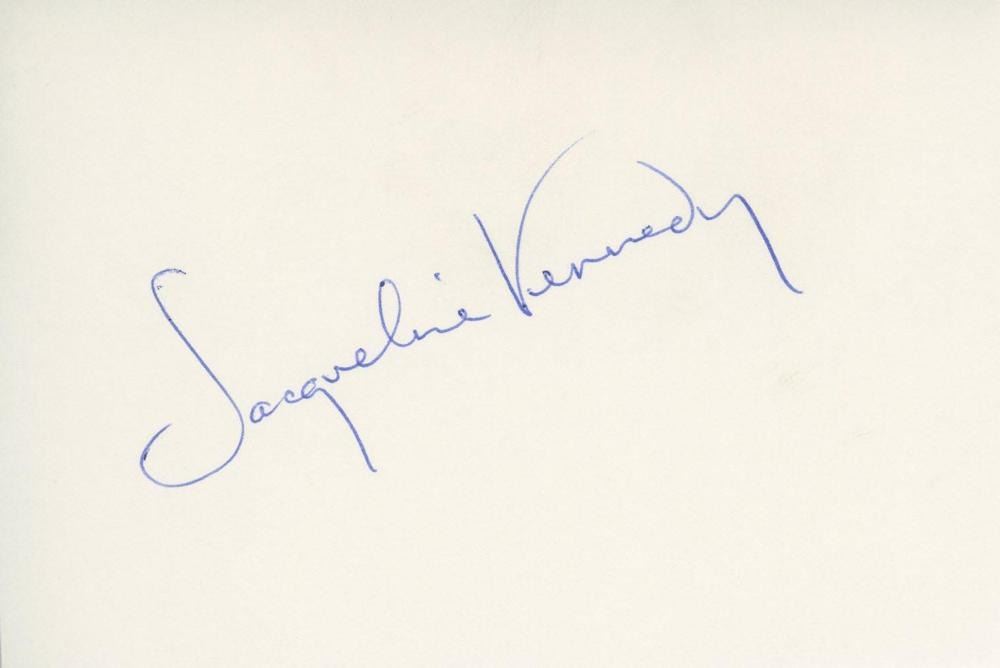 Jacqueline Kennedy